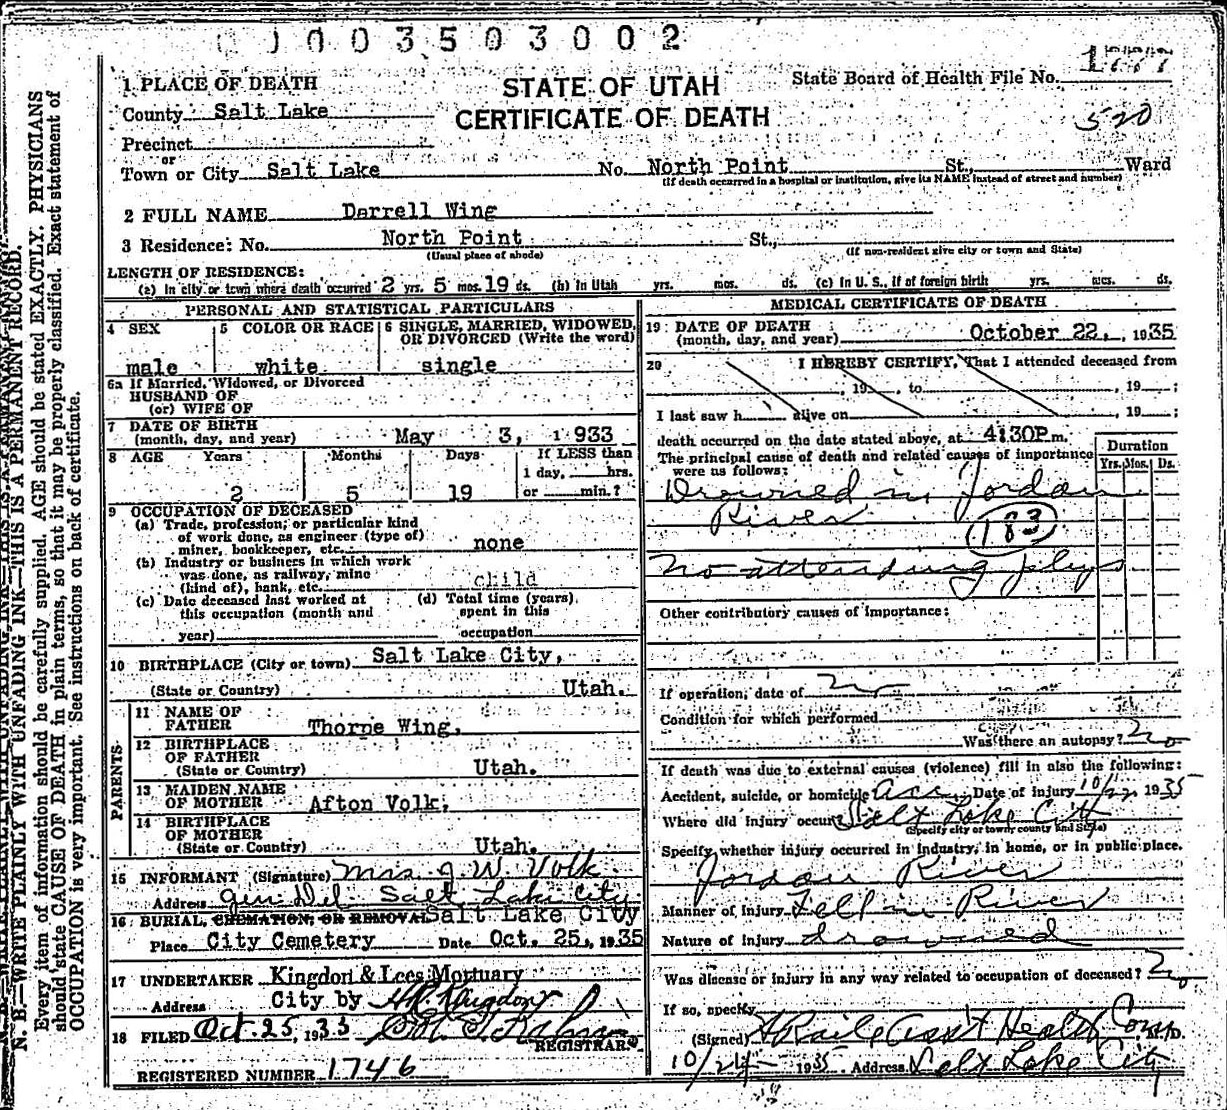 0 0 3 5 0 3 0 0 2
1777
STATE OF UTAH
CERTIFICATE OF DEATH
State Board of Health File No.
520
1 PLACE OF DEATH
County Salt Lake
Precinct
or
Town or City Salt Lake No. North Point St., Ward
(If death occurred in a hospital or institution, give its NAME instead of street and number)
2 FULL NAME Darrell Wing
3 Residence: No. North Point St.,
(Usual place of abode) (If non-resident give city or town and State)
LENGTH OF RESIDENCE:
(a) In city or town where death occurred 2 yrs. 5 mos. 19 ds. (b) In Utah yrs. mos. ds. (c) In U. S., if of foreign birth yrs. mos. ds.
PERSONAL AND STATISTICAL PARTICULARS
4 SEX 5 COLOR OR RACE 6 SINGLE, MARRIED, WIDOWED, OR DIVORCED (Write the word)
male white single
6a If Married, Widowed, or Divorced
HUSBAND OF
(or) WIFE OF
7 DATE OF BIRTH
(month, day, and year) May 3, 1933
8 AGE Years Months Days If LESS than
1 day, hrs.
2 5 19 or min.?
9 OCCUPATION OF DECEASED
(a) Trade, profession, or particular kind
of work done, as engineer (type of)
miner, bookkeeper, etc. none
(b) Industry or business in which work
was done, as railway, mine
(kind of), bank, etc. child
(c) Date deceased last worked at (d) Total time (years)
this occupation (month and spent in this
year) occupation
10 BIRTHPLACE (City or town) Salt Lake City,
(State or Country) Utah.
PARENTS
11 NAME OF
FATHER Thorpe Wing,
12 BIRTHPLACE
OF FATHER
(State or Country) Utah.
13 MAIDEN NAME
OF MOTHER Afton Volk,
14 BIRTHPLACE
OF MOTHER
(State or Country) Utah.
15 INFORMANT (Signature) Mrs. J. W. Volk
Address Gen Del Salt Lake City
16 BURIAL, CREMATION, OR REMOVAL Salt Lake City
Place City Cemetery Date Oct. 25, 1935
17 UNDERTAKER Kingdon & Lees Mortuary
Address City by
18 FILED Oct 25, 1935
REGISTRAR
REGISTERED NUMBER 1746
MEDICAL CERTIFICATE OF DEATH
19 DATE OF DEATH
(month, day, and year) October 22, 1935
20 I HEREBY CERTIFY, That I attended deceased from
, 19 , to , 19 ;
I last saw h alive on , 19 ;
death occurred on the date stated above, at 4:30P m.
The principal cause of death and related causes of importance
were as follows:
Duration
Yrs. Mos. Ds.
Drowned in Jordan
River
183
No attending phys
Other contributory causes of importance:
If operation, date of no
Condition for which performed
Was there an autopsy? No
If death was due to external causes (violence) fill in also the following:
Accident, suicide, or homicide acc. Date of injury 10/22 1935
Where did injury occur Salt Lake City
(Specify city or town, county and State)
Specify whether injury occurred in industry, in home, or in public place.
Jordan River
Manner of Injury Fell in River
Nature of injury drowned
Was disease or injury in any way related to occupation of deceased? No
If so, specify
(Signed) Asst Health Com M.D.
10/24 1935 Address Salt Lake City
N. B.—WRITE PLAINLY WITH UNFADING INK—THIS IS A PERMANENT RECORD.
Every item of information should be carefully supplied. AGE should be stated EXACTLY. PHYSICIANS
should state CAUSE OF DEATH in plain terms, so that it may be properly classified. Exact statement of
OCCUPATION is very important. See instructions on back of certificate.